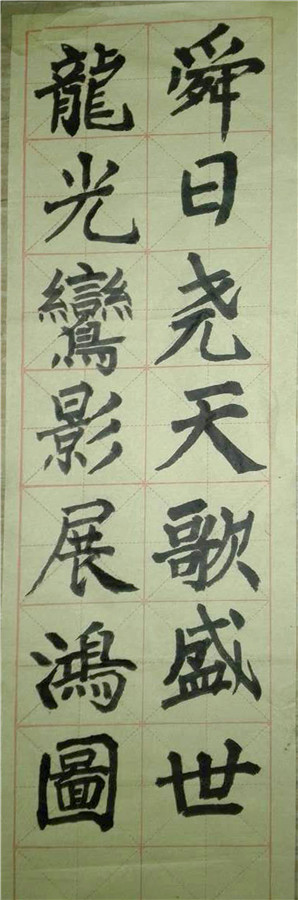 舜日尧天歌盛世
龍光鸞影展鴻圖